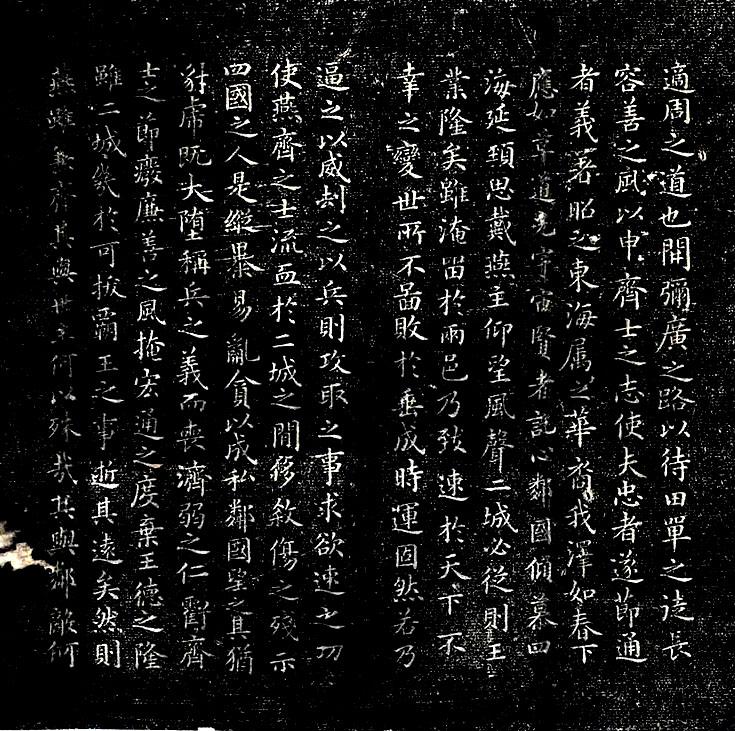 適周之道也開彌廣之路以待田單之徒長
容善之風以申齊士之志使夫忠者遂節通
者義著昭之東海属之華裔我澤如春下
應如草道光宇宙賢者託心鄰國傾慕四
海延頸思戴燕主仰望風聲二城必從則王
業隆矣雖淹留於兩邑乃致速於天下不
幸之變世所不啚敗於垂成時運固然若乃
逼之以威劫之以兵則攻取之事求欲速之功
使燕齊之士流血於二城之間侈煞傷之殘示
四國之人是縱暴易亂貪以成私鄰國望之其猶
豺虎既大墮稱兵之義而喪濟弱之仁虧齊
士之節癈廉善之風掩宏通之度棄王德之隆
雖二城幾於可拔霸王之事逝其遠矣然則
燕雖無齊其與世主何以殊哉其與鄰敵何